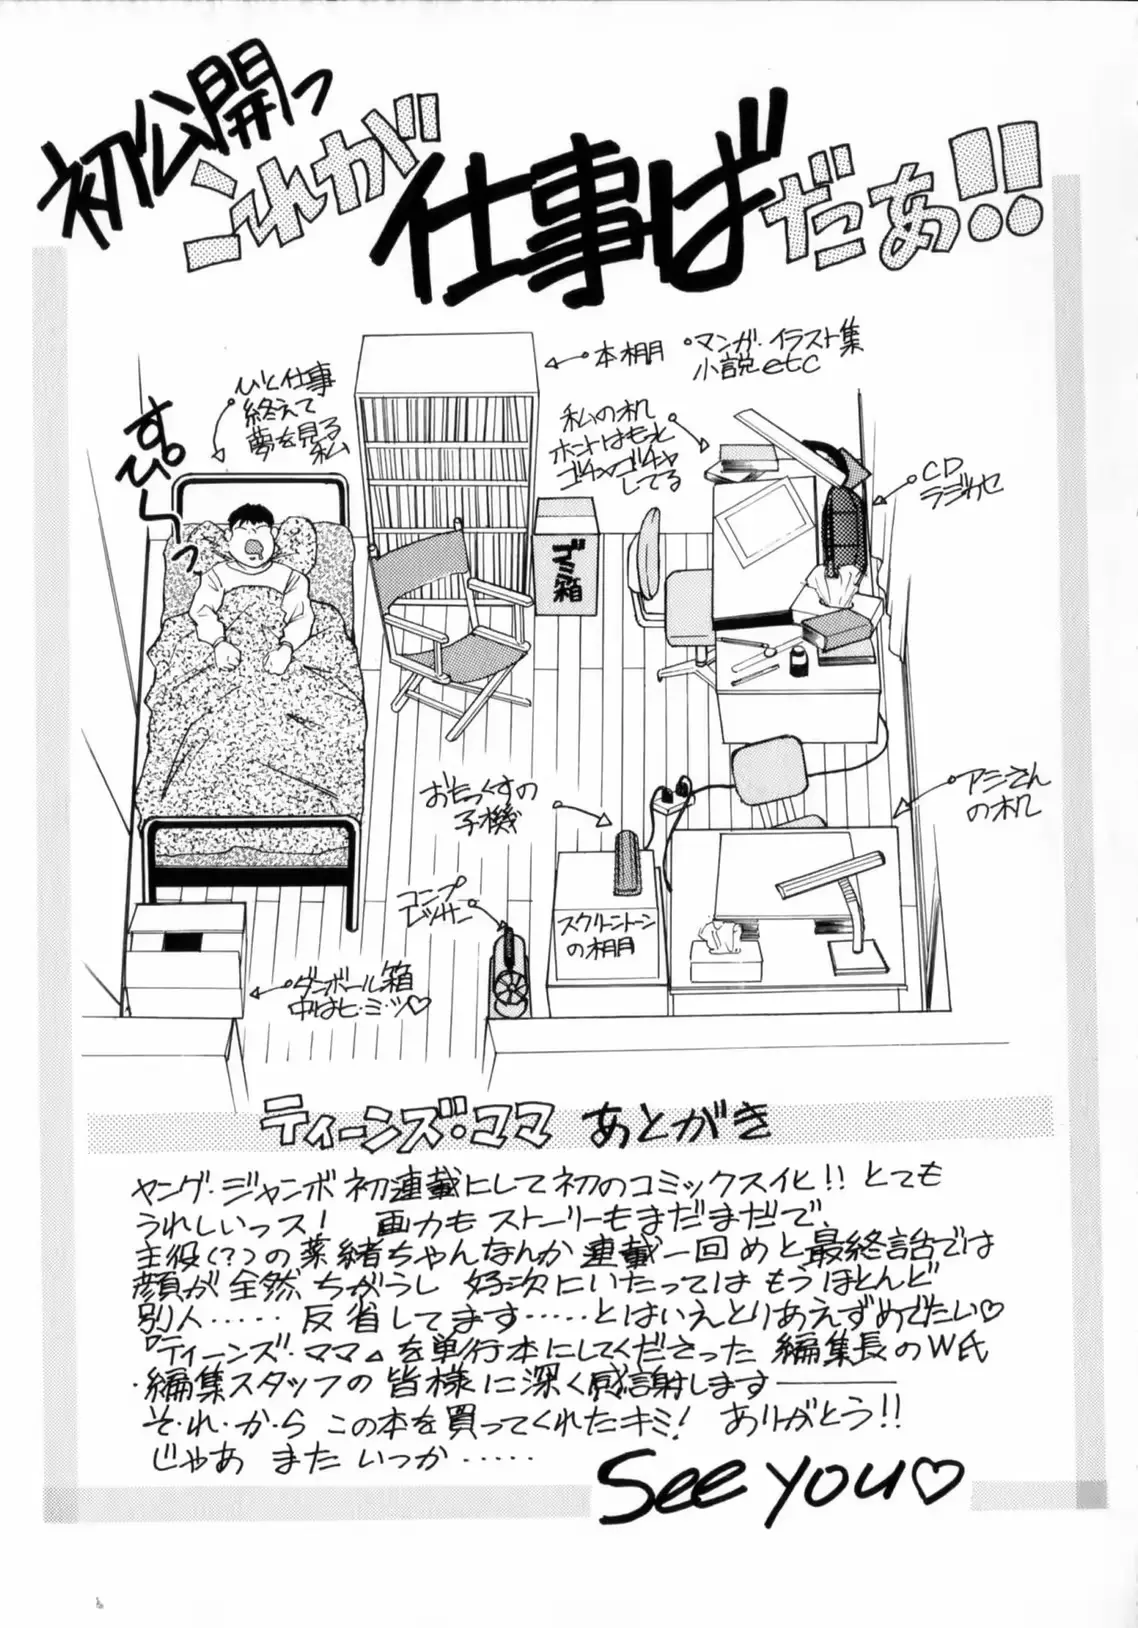 初公開っ
これが
仕事ば
だぁ!!
本棚
・マンガ・イラスト集
小説etc
ひと仕事
終えて
夢を見る
私
すぴ〜っ
私の机
ホントはもっと
ゴチャゴチャ
してる
CD
ラジカセ
ゴミ箱
おもっくすの
子機
アシさん
の机
コンプ
レッサー
スクリーントーン
の棚
ダンボール箱
中はヒ・ミ・ツ♡
ティーンズ・ママ あとがき
ヤング・ジャンボ初連載にして初のコミックス化!! とても
うれしいっス! 画力もストーリーもまだまだで、
主役(?)の薬緒ちゃんなんか連載一回めと最終話では
顔が全然ちがうし 好次にいたってはもうほとんど
別人・・・・・反省してます・・・・・とはいえとりあえずめでたい♡
『ティーンズ・ママ』を単行本にしてくださった編集長のW氏
・編集スタッフの皆様に深く感謝します―――
そ・れ・か・ら この本を買ってくれたキミ! ありがとう!!
じゃあ またいつか・・・・・
See you♡